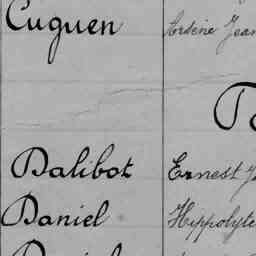 Cuguen Arsène Jean
Dalibot Ernest
Daniel Hippolyte